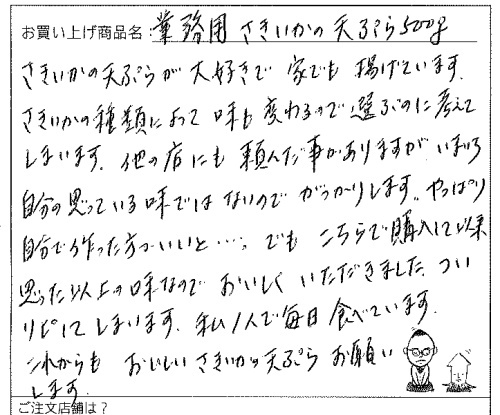 お買い上げ商品名：業務用 さきいかの天ぷら500g
さきいかの天ぷらが大好きで 家でも 揚げています。
さきいかの種類によって 味も 変わるので 選ぶのに考えて
しまいます。他の店にも 頼んだ事がありますが、いまいち
自分の思っている味ではないので がっかりします。やっぱり
自分で作った方がいいと…。でも こちらで購入して以来
思った以上の味なので おいしく いただきました。つい
リピしてしまいます。私1人で毎日 食べています。
これからも おいしい さきいかの天ぷら お願い
します。
ご注文店舗は？